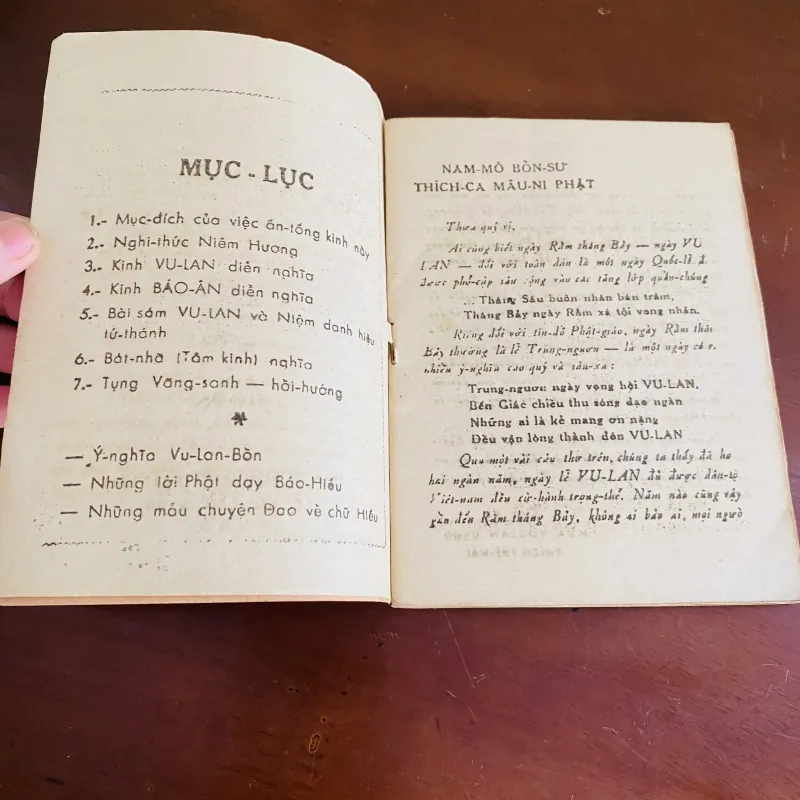 MỤC - LỤC
1.- Mục-đích của việc ấn-tống kinh này
2.- Nghi-thức Niêm Hương
3.- Kinh VU-LAN diễn nghĩa
4.- Kinh BÁO-ÂN diễn nghĩa
5.- Bài sám VU-LAN và Niệm danh hiệu
tứ-thánh
6.- Bát-nhã (Tâm kinh) nghĩa
7.- Tụng Vãng-sanh — hồi-hướng
*
— Ý-nghĩa Vu-Lan-Bồn
— Những lời Phật dạy Báo-Hiếu
— Những mẩu chuyện Đạo về chữ Hiếu
NAM-MÔ BỔN-SƯ
THÍCH-CA MÂU-NI PHẬT
Thưa quý vị,
Ai cũng biết ngày Rằm tháng Bảy — ngày VU
LAN — đối với toàn dân là một ngày Quốc-lễ
được phổ-cập sâu rộng vào các tầng lớp quần-chúng
... Tháng Sáu buôn nhãn bán trâm,
Tháng Bảy ngày Rằm xá tội vong nhân.
Riêng đối với tín-đồ Phật-giáo, ngày Rằm thá
Bảy thường là lễ Trung-ngươn — là một ngày có
nhiều ý-nghĩa cao quý và sâu-xa :
Trung-ngươn ngày vọng hội VU-LAN,
Bến Giác chiều thu sóng đạo ngàn
Những ai là kẻ mang ơn nặng
Đều vận lòng thành đón VU-LAN
Qua một vài câu thơ trên, chúng ta thấy đã hơ
hai ngàn năm, ngày lễ VU-LAN đủ được dân-tộ
Việt-nam đều cử-hành trọng-thể. Năm nào cũng vậy
gần đến Rằm tháng Bảy, không ai bảo ai, mọi ngườ